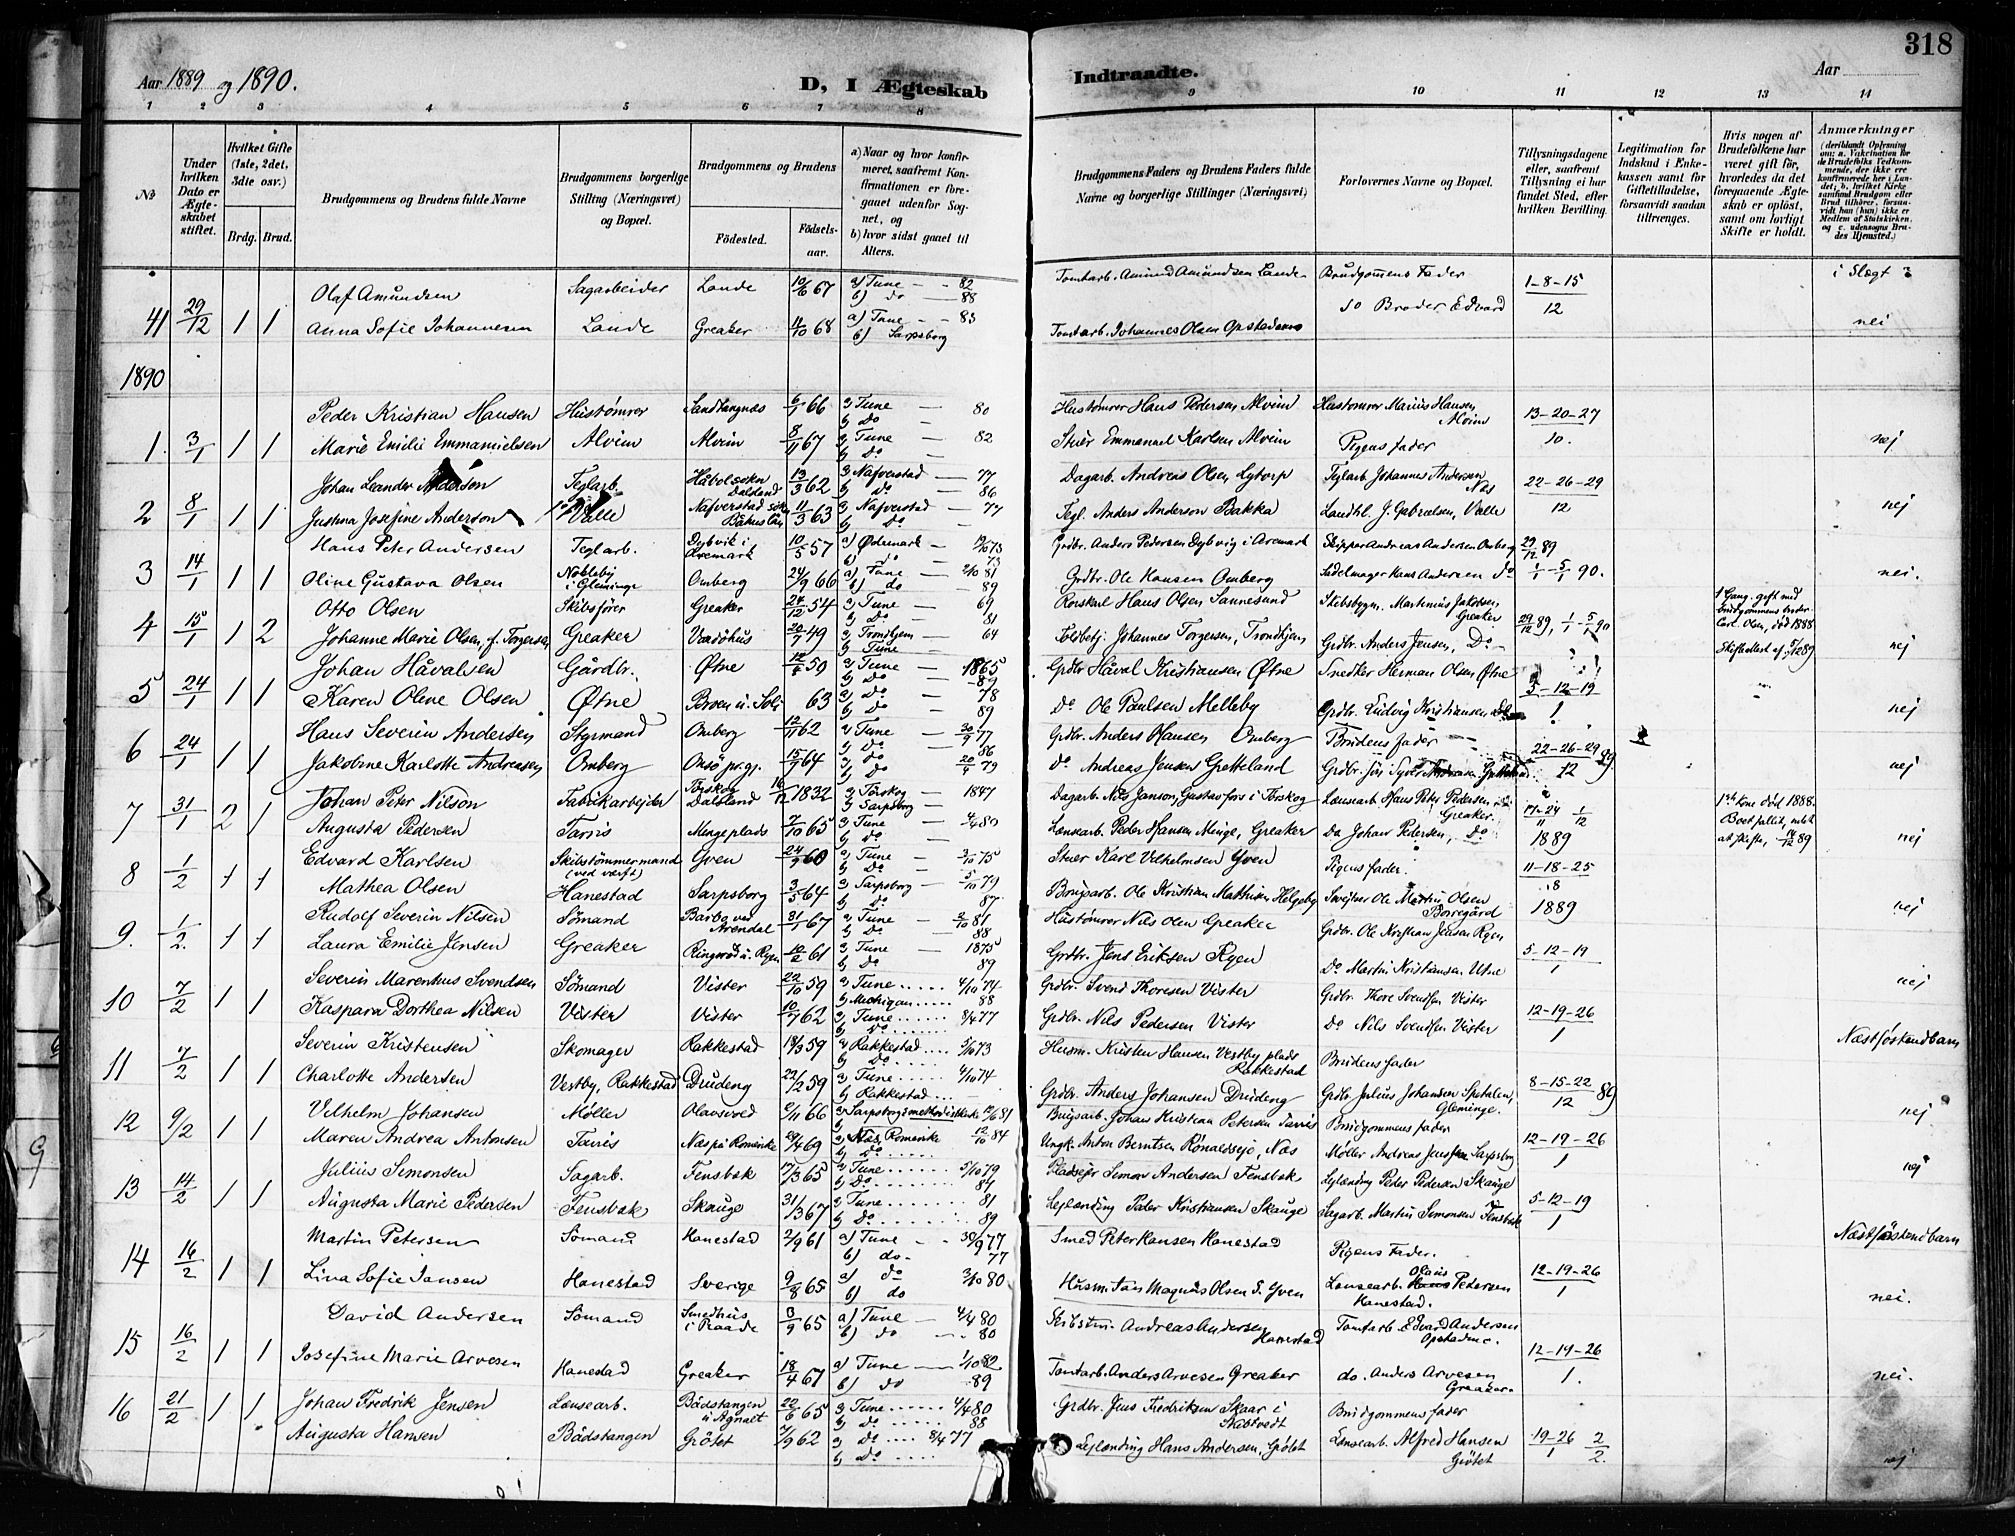 318
Aar 1889 og 1890.
D, I Ægteskab Indtraadte.
Aar
1 2 3 4 5 6 7 8 9 10 11 12 13 14
No
Under hvilken Dato er Ægteskabet stiftet.
Hvilket Gifte (1ste, 2det, 3die osv.)
Brdg. Brud.
Brudgommens og Brudens fulde Navne
Brudgommens borgerlige Stilling (Næringsvei) og Bopæl.
Brudgommens og Brudens
Födested.
Födselsaar.
a) Naar og hvor konfirmeret, saafremt Konfirmationen er foregaaet udenfor Sognet, og
b) hvor sidst gaaet til Alters.
Brudgommens Faders og Brudens Faders fulde Navne og borgerlige Stillinger (Næringsvei)
Forlovernes Navne og Bopæl.
Tillysningsdagene eller, saafremt Tillysning ei har fundet Sted, efter hvilken Bevilling.
Legitimation for Indskud i Enkekassen samt for Giftetilladelse, forsaavidt saadan tiltrænges.
Hvis nogen af Brudefolkene har været gift för, hvorledes da det foregaaende Ægteskab er oplöst, samt om lovligt Skifte er holdt.
Anmærkninger (deriblandt Oplysning om: a. Vakcination for de Brudefolks Vedkommende, der ikke ere konfirmerede her i Landet; b. hvilket Kirkesamfund Brudgom eller Brud tilhörer, forsaavidt han (hun) ikke er Medlem af Statskirken, og c. udensogns Brudes Hjemsted.)
Olaf Amundsen Sagarbeider Lande 10/6 67 a) Tune 82 b) do 88 Tomtarb. Amund Amundsen Lande Brudgommens Fader 1-8-15 i Slægt ?
41 29/12 1 1 Anna Sofie Johannesen Lande Greaker 4/10 68 a) Tune 83 b) Sarpsborg Tomtarb. Johannes Olsen Opstadens do Broder Edvard 12 nei
1890
Peder Kristian Hansen Hustømrer Sandtangnæs 6/1 66 a) Tune 80 b) Do Hustømrer Hans Pedersen Alvim Hustømrer Marius Hansen Alvim 13-20-27
1. 3/1 1 1 Marie Emilie Emmanuelsen Alvim Alvim 8/11 67 a) Tune 82 b) Do Stuer Emmanuel Karlsen Alvim Pigens fader nej
Johan Leander Anderson Teglarb. Håbolsokn Dalsland 13/3 62 a) Nafverstad 77 b) Do 86 Dagarb. Andreas Olsen Lytorp Teglarb. Johannes Andersen Næs 22-26-29
2 8/1 1 1 Justina Josefine Anderson Valle Nafverstad sokn Båhus län 11/3 63 a) Nafverstad 77 b) Do Tegl. Anders Anderson Bakka Landhl. J. Gabrielsen, Valle 12 nej
Hans Peter Andersen Teglarb. Dybvik i Aremark 10/5 57 a) Ødemark 73 b) do 73 Grdbr. Anders Pedersen Dybvig i Aremark Skipper Andreas Andersen Omberg 29/12 89
3 14/1 1 1 Oline Gustava Olsen Nobleby i Gleminge Omberg 24/9 66 a) Tune 2/10 81 b) do 89 Grdbr. Ole Hansen Omberg Sadelmager Hans Andersen do 1/1 - 5/1 90. nei.
Otto Olsen Skibsfører Greaker 24/12 54 a) Tune 69 b) Do 81 Rorskarl Hans Olsen Sannesund Skibsbygm. Martinius Jakobsen Greaker 29/12 89, 1/1 - 5/1 90 1 Gang. gift med
4 15/1 1 2 Johanne Marie Olsen, f. Torgersen Greaker Vardöhus 20/7 49 a) Trondhjem 64 b) Tune Toldbetj. Johannes Torgersen, Trondhjem Grdbr. Anders Jensen, Do Carl Olsen, död 1888 nej
Johan Håvalsen Gårdbr. Øtne 50 a) Tune 1865 b) Do 89 Grdbr Håval Kristiansen Øtne Snedker Herman Olsen Øtne
5 24/1 1 1 Karen Oline Olsen Øtne 63 a) do 78 b) Do 89 Do Ole Paulsen Melleby Grdbr. Ludvig Kristiansen Do 5-12-19 1 nej
Hans Severin Andersen Styrmand Omberg 12/11 62 a) Tune 30/9 77 b) Do 86 Grdbr. Anders Hansen Omberg Brudens fader 22-26-29 89
6 24/1 1 1 Jakobine Karlotte Andreasen Omberg Onsö prgj. 15/9 64 a) Do 79 b) Do Do Andreas Jensen Gretteland 12 nej
Johan Peter Nilson Fabrikarbejder Torskog Dalsland 16/12 1832 a) Torskog 1847 b) Sarpsborg Dagarb. Nils Janson, Gustafsfors i Torskog Lænsearb. Hans Peter Pedersen Greaker. 17-24/11 1/12 1ste Kone död 1888.
7 31/1 2 1 Augusta Pedersen Tarris Mingeplads 7/10 65 a) Tune 4/4 80 b) Do Lænsearb. Peder Hansen Minge, Greaker Do Johan Pedersen, Do 1889 nej
Edvard Karlsen Skibstömmermand (ved værft) Yven 24/9 60 a) Tune 3/10 75 b) Do Stuer Karl Vilhelmsen Yven Pigens fader. 11-18-25
8 1/2 1 1 Mathea Olsen Hanestad Sarpsborg 3/5 64 a) Sarpsborg 5/10 79 b) Do 87 Brugsarb. Ole Kristian Mathisen Helgeby Svejtser Ole Martin Olsen Borregård 8 1889 nej
Rudolf Severin Nilsen Sömand Barbo ved Arendal 31/1 67 a) Tune 2/10 81 b) Do 88 Hustömrer Nils Olsen Greaker Grdbr. Ole Kristian Jensen Ryen
9. 1/2. 1 1 Laura Emilie Jensen Greaker 10/2 61 a) Tune 1875 b) Do 89 Grdbr. Jens Eriksen Ryen Do Martin Kristiansen Utne 5-12-19 1
Severin Marenthus Svendsen Sömand Vister 22/10 59 a) Tune 4/10 74 b) Michigan 88 Grdbr. Svend Thoresen Vister Grdbr. Thore Svendsen Vister nej
10 7/2 1 1 Kaspara Dorthea Nilsen Vister Vister 10/7 62 a) Tune 8/4 77 b) Do Grdbr. Nils Pedersen Vister Do Nils Svendsen Vister 12-19-26 1
Severin Kristensen Skomager Rakkestad 18/3 59 a) Rakkestad 5/10 73 b) Do Husm. Kristen Hansen Vestby plads Rakkestad Brudens fader Næstsöskendbarn
11 7/2 1 1 Charlotte Andersen Vestby, Rakkestad Drudeng 22/2 59 a) Tune 4/10 74 b) Rakkestad Grdbr. Anders Johansen Drudeng Grdbr. Julius Johansen Spetalen, Gleminge. 8-15-22 12 89
Vilhelm Johansen Møller Olavsved 6/11 66 a) Sarpsborgs methodistkirke 12/6 81 Brugsarb. Johan Kristian Petersen Tarris Brudgommens fader nej
12 9/2 1 1 Maren Andrea Antonsen Tarris Næs på Romerike 29/4 69 a) Næs, Romerike 12/10 84 b) Do Ungk. Anton Berntsen Rönaldsejo, Næs Møller Andreas Jensen Sarpsborg 12-19-26 1
Julius Simonsen Sagarb. Fensbak 7/3 65 a) Tune 5/10 79 b) Do Pladsejer Simon Andersen Fensbak Leilænding Peder Pedersen Skauge nej
13 14/2 1 1 Augusta Marie Pedersen Fensbak Skauge 31/3 67 a) Tune 81 b) Do 89 Leilænding Peder Kristiansen Skauge Sagarb. Martin Simonsen Fensbak 5-12-19 1
Martin Petersen Sömand Hanestad 2/9 61 a) Tune 30/9 77 b) do. 77 Smed Peter Hansen Hanestad Pigens Fader. Næstsöskendbarn
14 16/2 1 1 Lina Sofie Jansen Hanestad Sverige 9/8 65 a) do 3/10 80 b) do Husm. Jan Magnus Olsen S. Yven Lænsearb. Olaus Petersen Hanestad. 12-19-26 1 nei.
David Andersen Sömand Smedhus i Raade 3/9 65 a) Tune 4/4 80 b) do 80 Skibstm. Andreas Andersen Hanestad Tomtarb. Edvard Andersen Opstadens.
15 16/2 1 1 Josefine Marie Arvesen Hanestad Greaker 18/4 67 a) Tune 1/10 82 b) do 89 Tomtarb. Anders Arvesen Greaker do. Anders Arvesen Greaker. 12-19-26 1. nei.
16 21/2 1 1 Johan Fredrik Jensen Lænsearb. Bådstangen i Agnalt 22/6 65 a) Tune 4/4 80 b) do 88 Grdbr. Jens Fredriksen Skaar i Skibtvedt Brudgommens fader
Augusta Hansen Bådstangen Grötet 7/9 62 a) Do 8/4 77 b) Do Leilænding Hans Andersen, Grötet Lænsearb. Alfred Hansen Grötet 19-26 1 2/2. nej